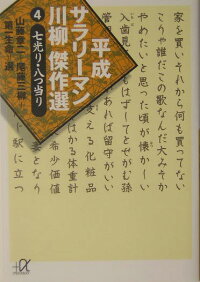 平成
サラリーマン
川柳 傑作選
4
七光り・八つ当り
山藤章二・尾藤三柳
第一生命 選
家を買いそれから何も買ってない
こうや誰だこの歌なんだ大みそか
やめたいと思った頃が懐かしい
入歯見
もはずしてとせがむ孫
あれば留守がいい
支える化粧品
はかる体重計
希少価値
妻となり
駅に立つ
+α